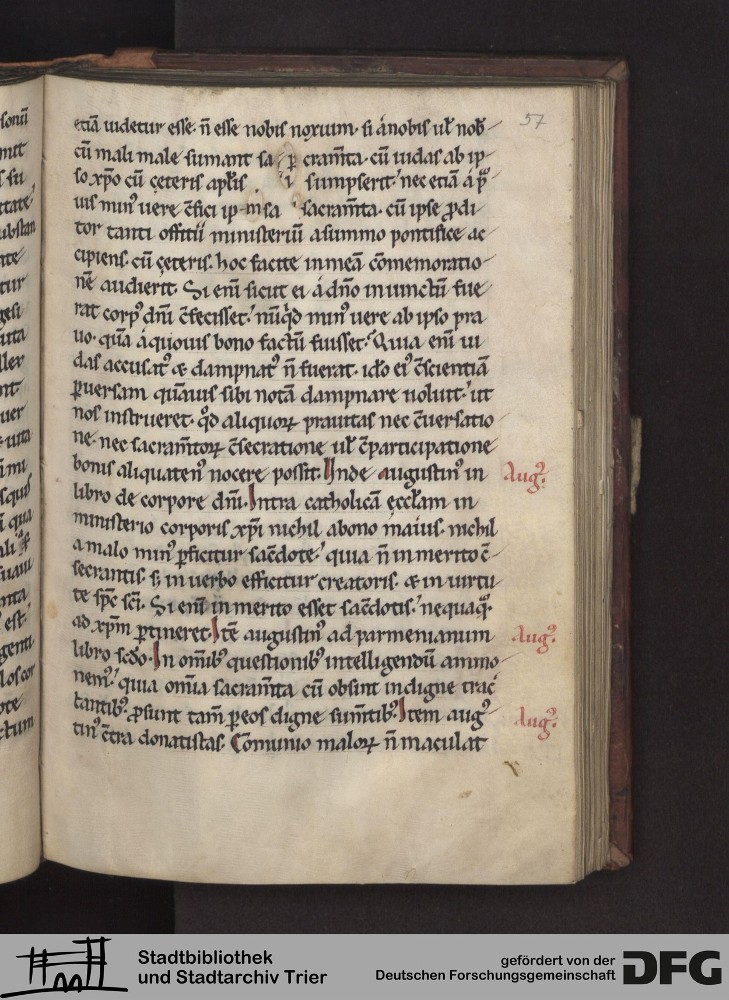 57
etiā uidetur esse. n̄ esse nobis noxium. si ánobis ul̄ nob̄
cū mali male sumant sa cram̄ta. cū iudas ab ip
so xp̄o cū ceteris apl̄is sumpserit. nec etiā á p̄
uis min᷒ uere c̄fici ip sa sacram̄ta. cū ipse ꝓdi
tor tanti offitii ministeriū asummo pontifice ac
cipiens. cū ceteris. hoc facite in meā cōmemoratio
nē audierit. Si enī sicut ei á dn̄o iniunctū fue
rat corp᷒ dn̄i c̄fecisset. nūq̇d min᷒ uere ab ipso pra
uo. quā áquouis bono factū fuisset. Quia enī iu
das accusat᷒ & dampnat᷒ n̄ fuerat. id́o ei᷒ c̄scientiā
ꝑuersam quāuis sibi notā dampnare noluit. ut
nos instrueret. qd̄ aliquoꝝ prauitas nec c̄uersatio
ne. nec sacram̄toꝝ c̄secratione ul̄ c̄participatione
bonis aliquaten᷒ nocere possit. Vnde augustin᷒ in
libro de corpore dn̄i. Intra catholicā eccl̄am in
ministerio corporis xp̄i nichil abono maius. nichil
a malo min᷒ ꝑficitur sac̄dote. quia n̄ in merito c̄
secrantis. s; in uerbo efficitur creatoris. & in uirtu
te sp̄c sc̄i. Si enī in merito esset sac̄dotis. nequaq̄.
ad xp̄m ꝑtineret. Itē augustin᷒ ad parmenianum
libro sc̄do. In omīb᷒ questionib᷒ intelligendū ammo
nem᷒. quia om̄ia sacram̄ta cū obsint indigne trac
tantib᷒. ꝓsunt tam̄ ꝑ eos digne sum̄tib᷒. Item aug᷒
tin᷒ c̄tra donatistas. Comunio maloꝝ n̄ maculat
Aug᷒.
Aug᷒.
Aug᷒.
Stadtbibliothek
und Stadtarchiv Trier
gefördert von der
Deutschen Forschungsgemeinschaft
DFG